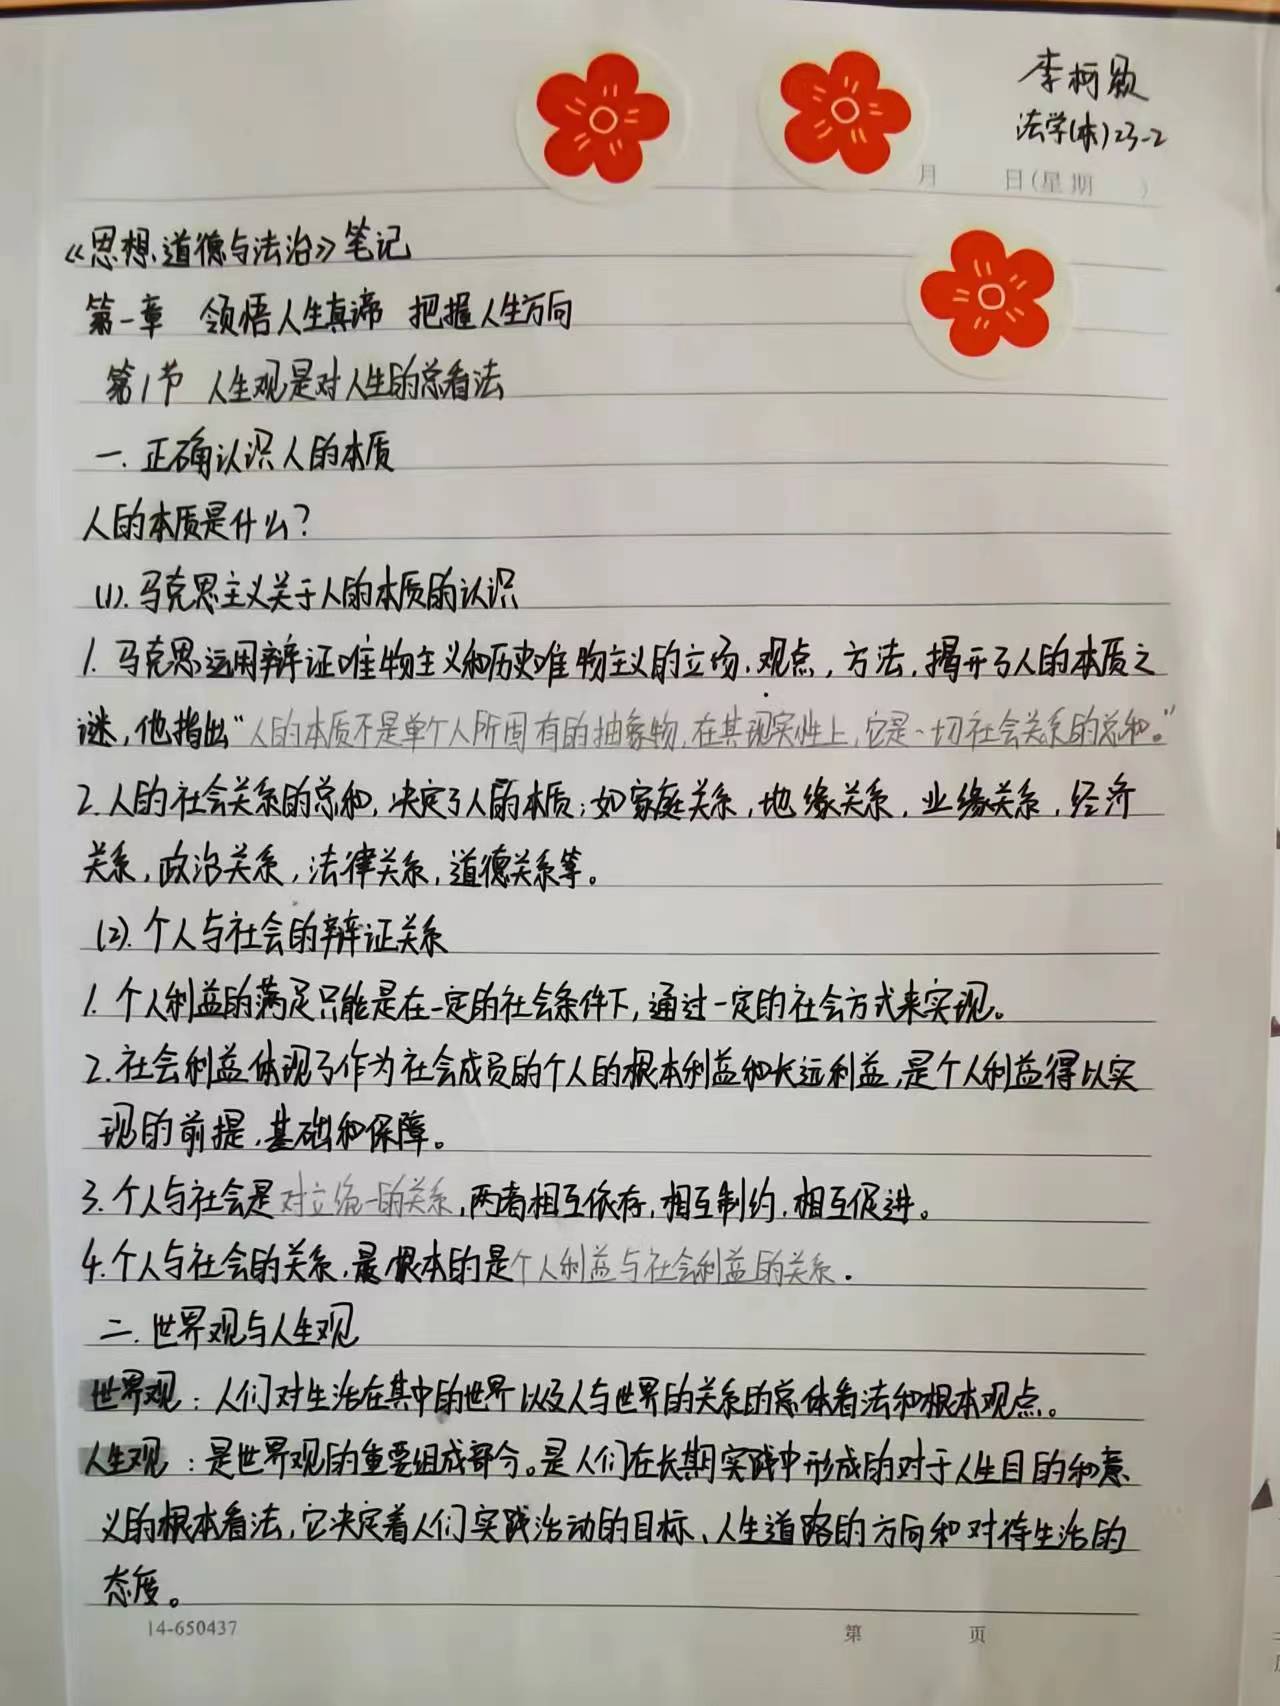 李柯颖
法学(本)23-2
月 日(星期 )
《思想道德与法治》笔记
第一章 领悟人生真谛 把握人生方向
第1节 人生观是对人生的总看法
一.正确认识人的本质
人的本质是什么?
(1).马克思主义关于人的本质的认识
1.马克思运用辩证唯物主义和历史唯物主义的立场、观点,方法,揭开了人的本质之
谜,他指出“人的本质不是单个人所固有的抽象物,在其现实性上,它是一切社会关系的总和。”
2.人的社会关系的总和,决定了人的本质;如家庭关系,地缘关系,业缘关系,经济
关系,政治关系,法律关系,道德关系等。
(2).个人与社会的辩证关系
1.个人利益的满足只能是在一定的社会条件下,通过一定的社会方式来实现。
2.社会利益体现了作为社会成员的个人的根本利益和长远利益,是个人利益得以实
现的前提,基础和保障。
3.个人与社会是对立统一的关系,两者相互依存,相互制约,相互促进。
4.个人与社会的关系,最根本的是个人利益与社会利益的关系.
二.世界观与人生观
世界观:人们对生活在其中的世界以及人与世界的关系的总体看法和根本观点。
人生观:是世界观的重要组成部分。是人们在长期实践中形成的对于人生目的和意
义的根本看法,它决定着人们实践活动的目标、人生道路的方向和对待生活的
态度。
14-650437
第 页